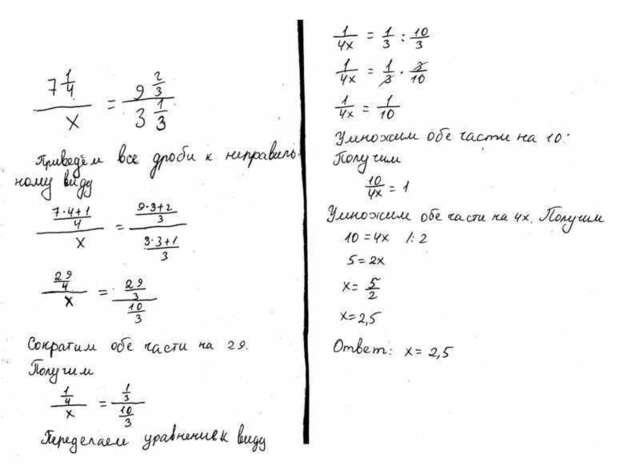 7 1/4 / x = 9 2/3 / 3 1/3
Приведём все дроби к неправиль-
ному виду
(7·4+1)/4 / x = (9·3+2)/3 / (3·3+1)/3
29/4 / x = 29/3 / 10/3
Сократим обе части на 29.
Получим
1/4 / x = 1/3 / 10/3
Переделаем уравнение к виду
1/4x = 1/3 : 10/3
1/4x = 1/3 · 3/10
1/4x = 1/10
Умножим обе части на 10:
Получим
10/4x = 1
Умножим обе части на 4x. Получим
10 = 4x /: 2
5 = 2x
x = 5/2
x = 2,5
Ответ: x = 2,5